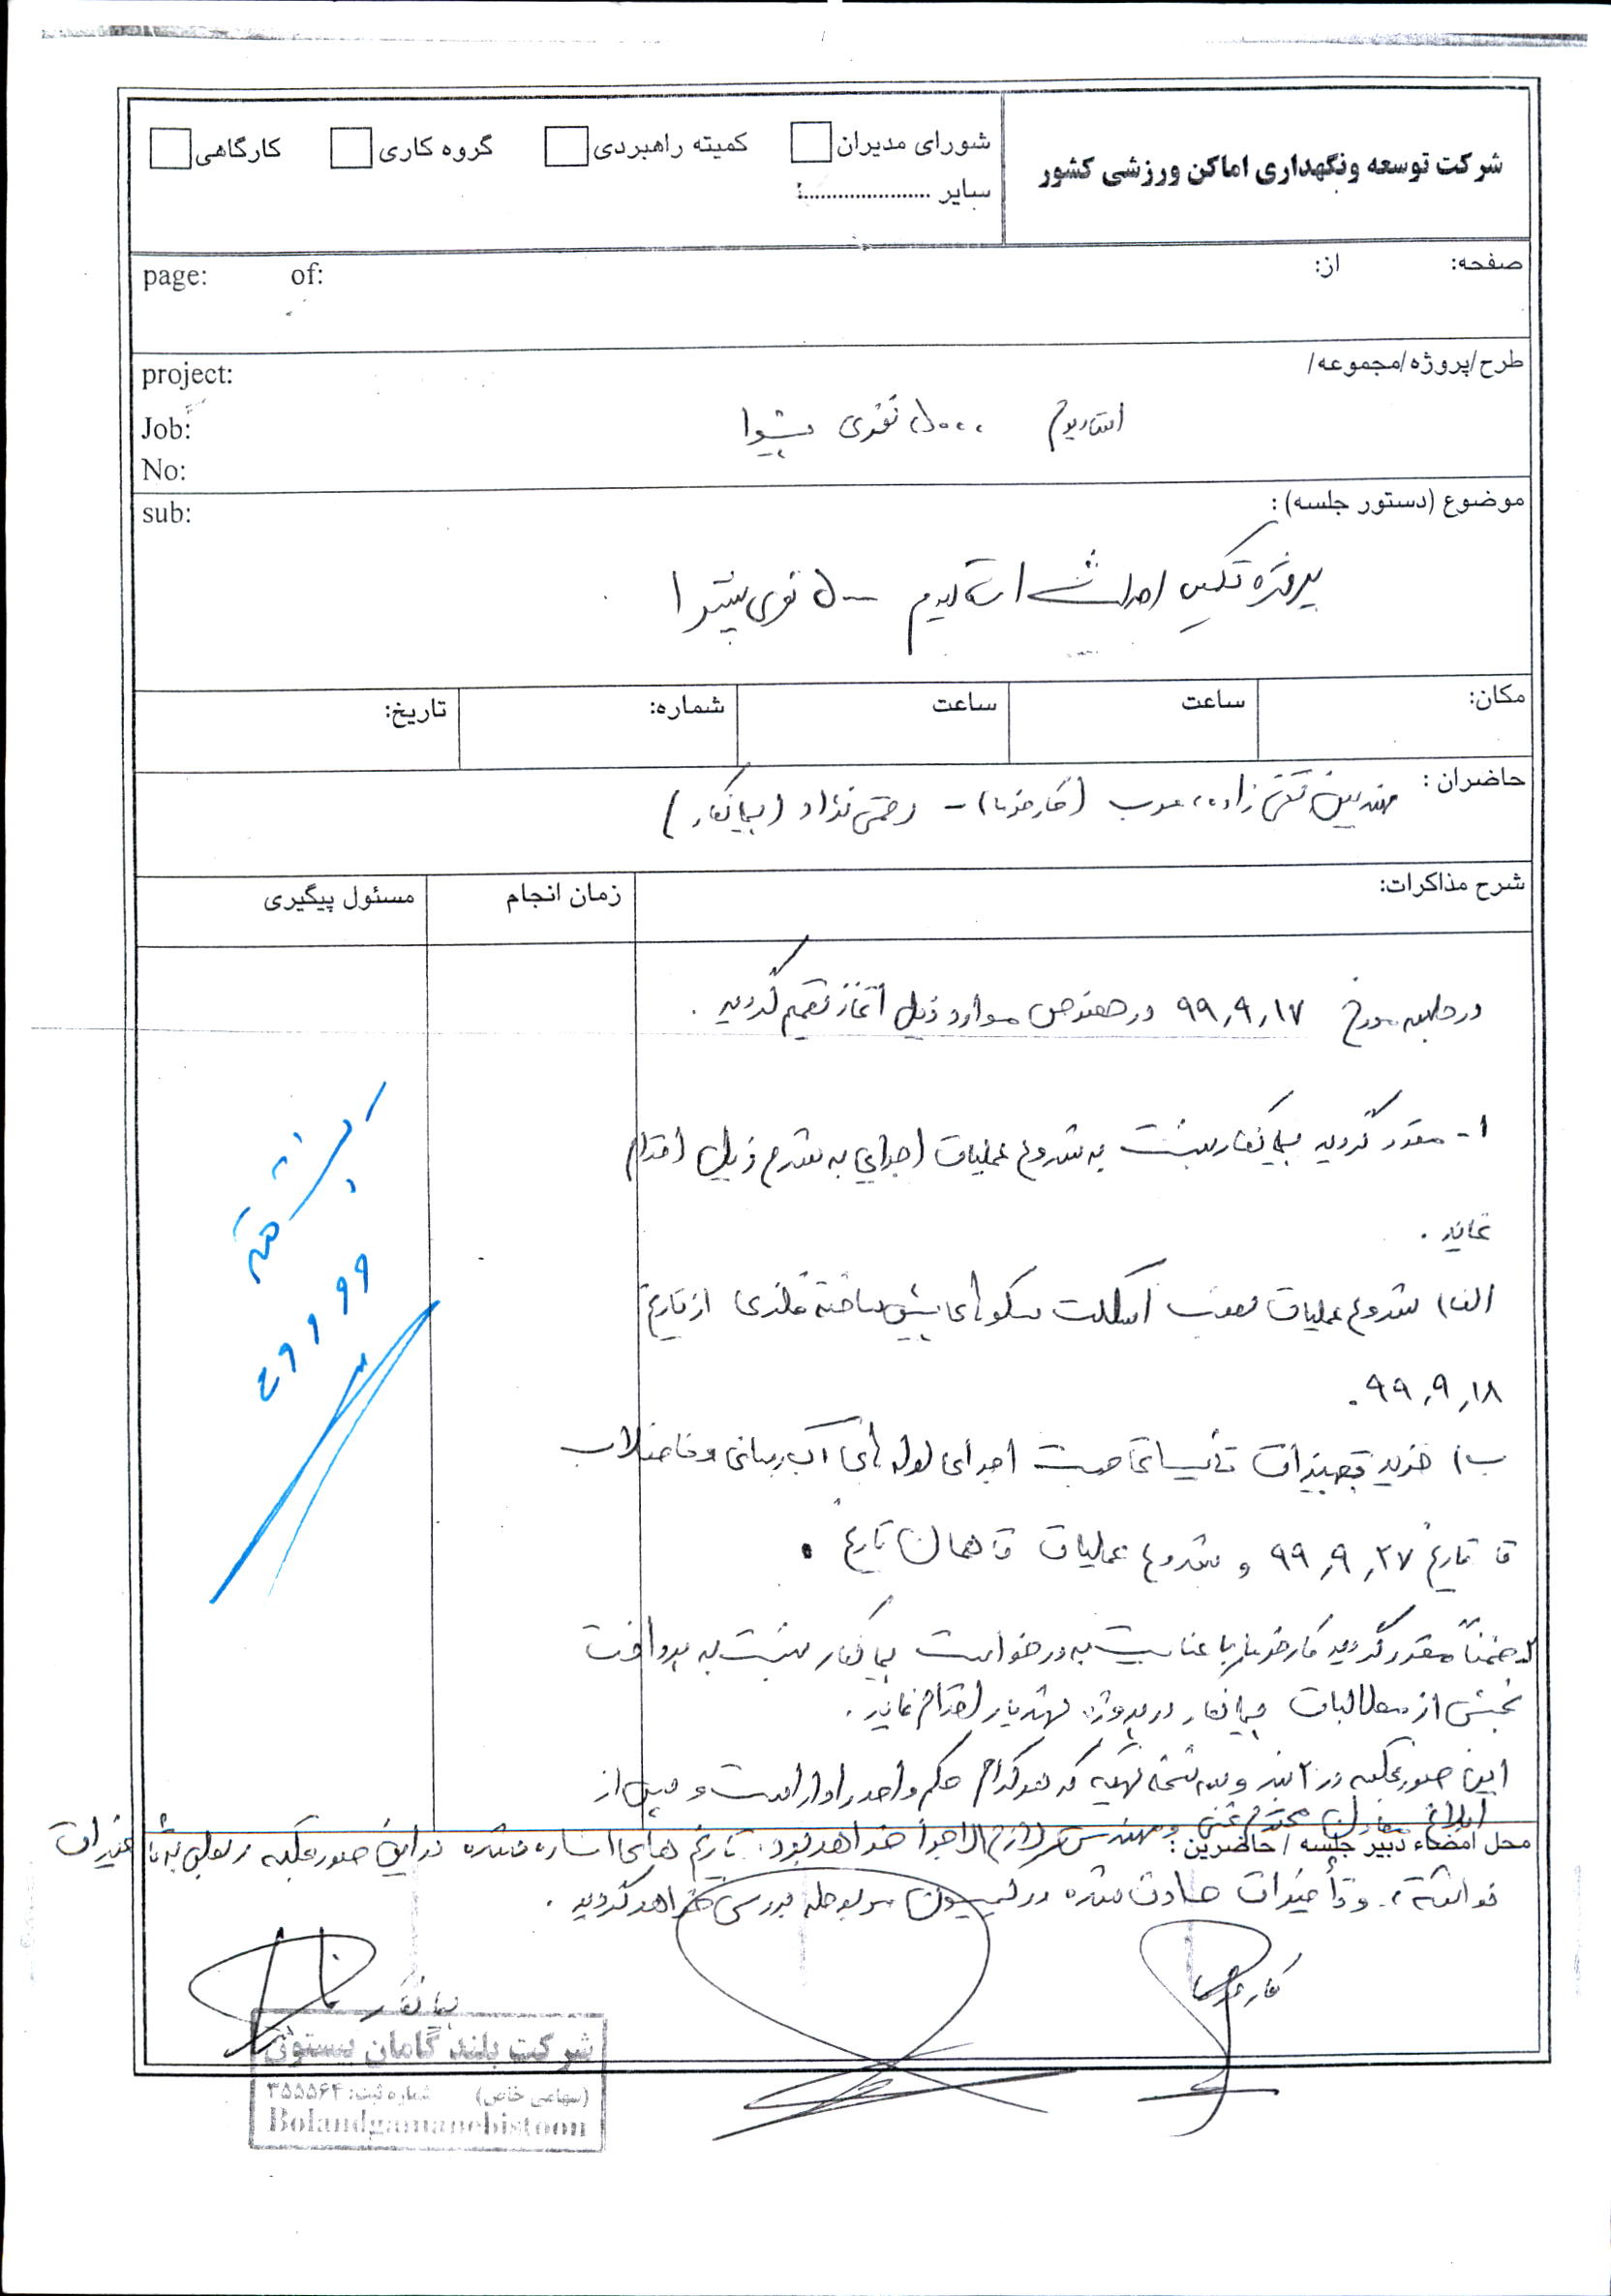 شرکت توسعه ونگهداری اماکن ورزشی کشور
شورای مدیران
کمیته راهبردی
گروه کاری
کارگاهی
سایر ......................:
صفحه: از:
page: of:
طرح/پروژه/مجموعه/
project:
استادیوم ۵۰۰۰ نفری پیشوا
Job:
No:
موضوع (دستور جلسه):
sub:
پروژه تکمیل احداث استادیوم ۵۰۰۰ نفری پیشوا
مکان: ساعت ساعت شماره: تاریخ:
حاضران:
مهندسین تقی زاده، عرب (کارفرما) - رحمتی نژاد (پیمانکار)
شرح مذاکرات: زمان انجام مسئول پیگیری
در جلسه مورخ ۹۹,۹,۱۷ در خصوص موارد ذیل اتخاذ تصمیم گردید.
۱- مقرر گردید پیمانکار نسبت به شروع عملیات اجرایی به شرح ذیل اقدام
نماید.
الف) شروع عملیات نصب اسکلت سکوهای پیش ساخته فلزی از تاریخ
۹۹,۹,۱۸.
ب) خرید تجهیزات تأسیساتی جهت اجرای لوله های آب رسانی و فاضلاب
تا تاریخ ۹۹,۹,۲۷ و شروع عملیات تا همان تاریخ.
ضمناً مقرر گردید کارفرما با عنایت به درخواست پیمانکار نسبت به پرداخت
بخشی از مطالبات پیمانکار در پروژه شهریار اقدام نماید.
این صورتجلسه در ۲ بند و سه نسخه تهیه که هر کدام حکم واحد را دارا است و پس از
ابلاغ معاون محترم فنی و مهندسی لازم الاجرا خواهد بود. تاریخ های اشاره شده در این صورتجلسه
محل امضاء دبیر جلسه / حاضرین:
نداشته، و تأخیرات حادث شده در کمیسیون مربوطه بررسی خواهد گردید.
کارفرما
پیمانکار
شرکت بلند گامان بیستون
(سهامی خاص) شماره ثبت: ۳۵۵۵۶۴
Bolandgamanebistoon